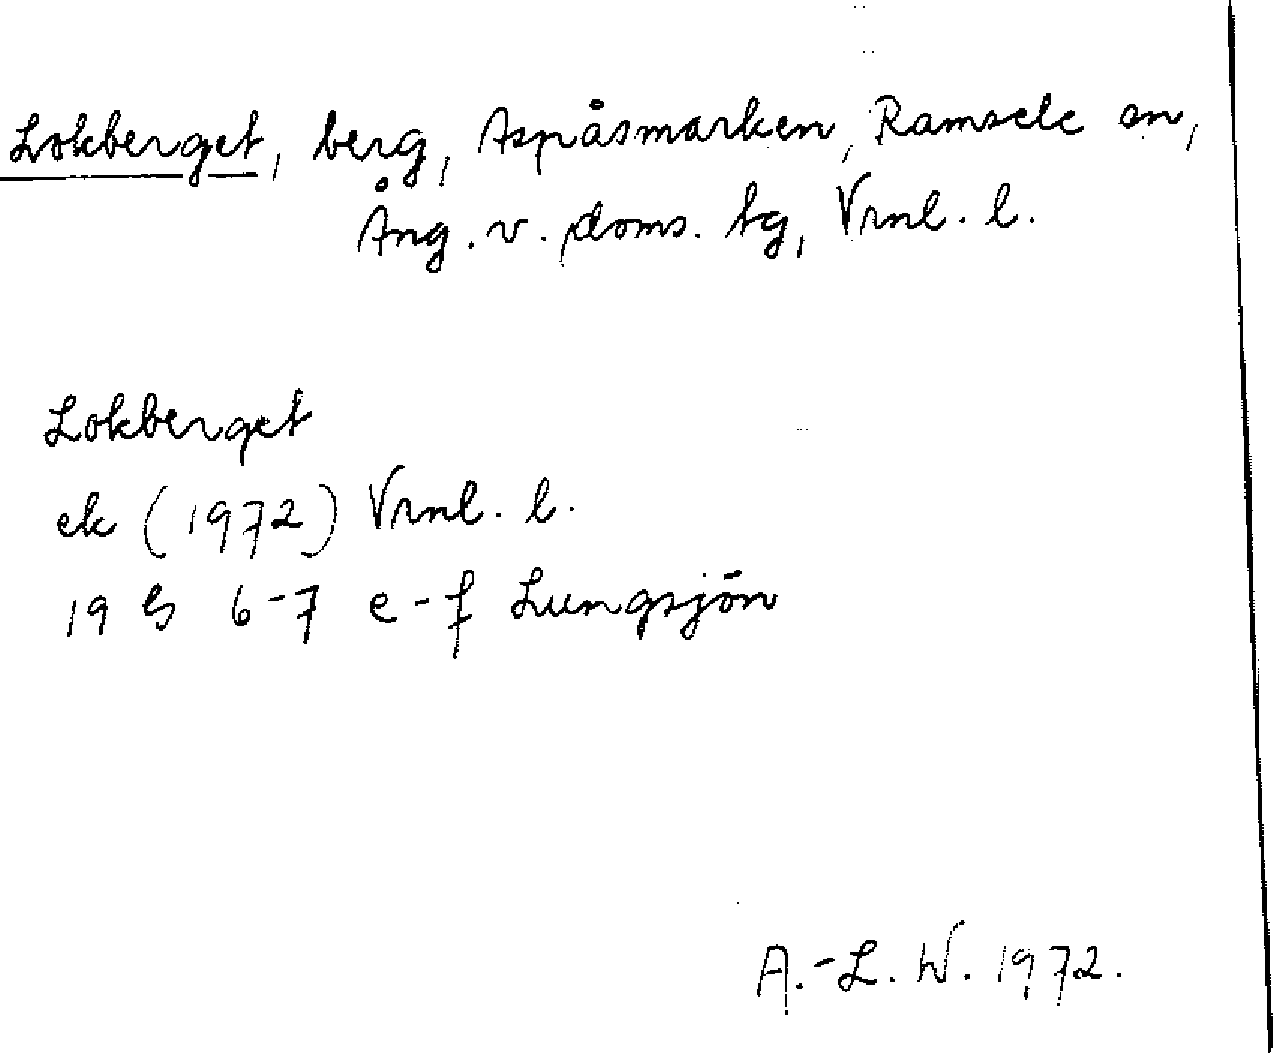 Lokberget, berg, Aspåsmarken, Ramsele sn,
Ång. v. doms. tg, Vrnl. l.
Lokberget
ek (1972) Vrnl. l.
19 G 6-7 e-f Lungsjön
A.-L. W. 1972.